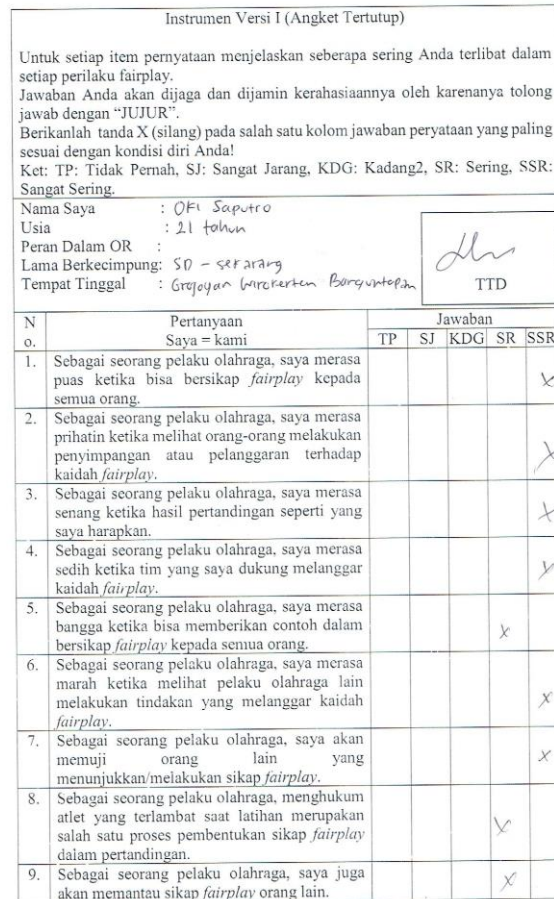 Instrumen Versi I (Angket Tertutup)
Untuk setiap item pernyataan menjelaskan seberapa sering Anda terlibat dalam
setiap perilaku fairplay.
Jawaban Anda akan dijaga dan dijamin kerahasiaannya oleh karenanya tolong
jawab dengan “JUJUR”.
Berikanlah tanda X (silang) pada salah satu kolom jawaban peryataan yang paling
sesuai dengan kondisi diri Anda!
Ket: TP: Tidak Pernah, SJ: Sangat Jarang, KDG: Kadang2, SR: Sering, SSR:
Sangat Sering.
Nama Saya : OKI Saputro
Usia : 21 tahun
Peran Dalam OR :
Lama Berkecimpung: SD - sekarang
Tempat Tinggal : Grojogan Wirokerten Banguntapan
TTD
N Pertanyaan Jawaban
o. Saya = kami TP SJ KDG SR SSR
1. Sebagai seorang pelaku olahraga, saya merasa
puas ketika bisa bersikap fairplay kepada
semua orang. X
2. Sebagai seorang pelaku olahraga, saya merasa
prihatin ketika melihat orang-orang melakukan
penyimpangan atau pelanggaran terhadap X
kaidah fairplay.
3. Sebagai seorang pelaku olahraga, saya merasa
senang ketika hasil pertandingan seperti yang X
saya harapkan.
4. Sebagai seorang pelaku olahraga, saya merasa
sedih ketika tim yang saya dukung melanggar X
kaidah fairplay.
5. Sebagai seorang pelaku olahraga, saya merasa
bangga ketika bisa memberikan contoh dalam
bersikap fairplay kepada semua orang. X
6. Sebagai seorang pelaku olahraga, saya merasa
marah ketika melihat pelaku olahraga lain
melakukan tindakan yang melanggar kaidah X
fairplay.
7. Sebagai seorang pelaku olahraga, saya akan
memuji orang lain yang X
menunjukkan/melakukan sikap fairplay.
8. Sebagai seorang pelaku olahraga, menghukum
atlet yang terlambat saat latihan merupakan
salah satu proses pembentukan sikap fairplay X
dalam pertandingan.
9. Sebagai seorang pelaku olahraga, saya juga
akan memantau sikap fairplay orang lain. X